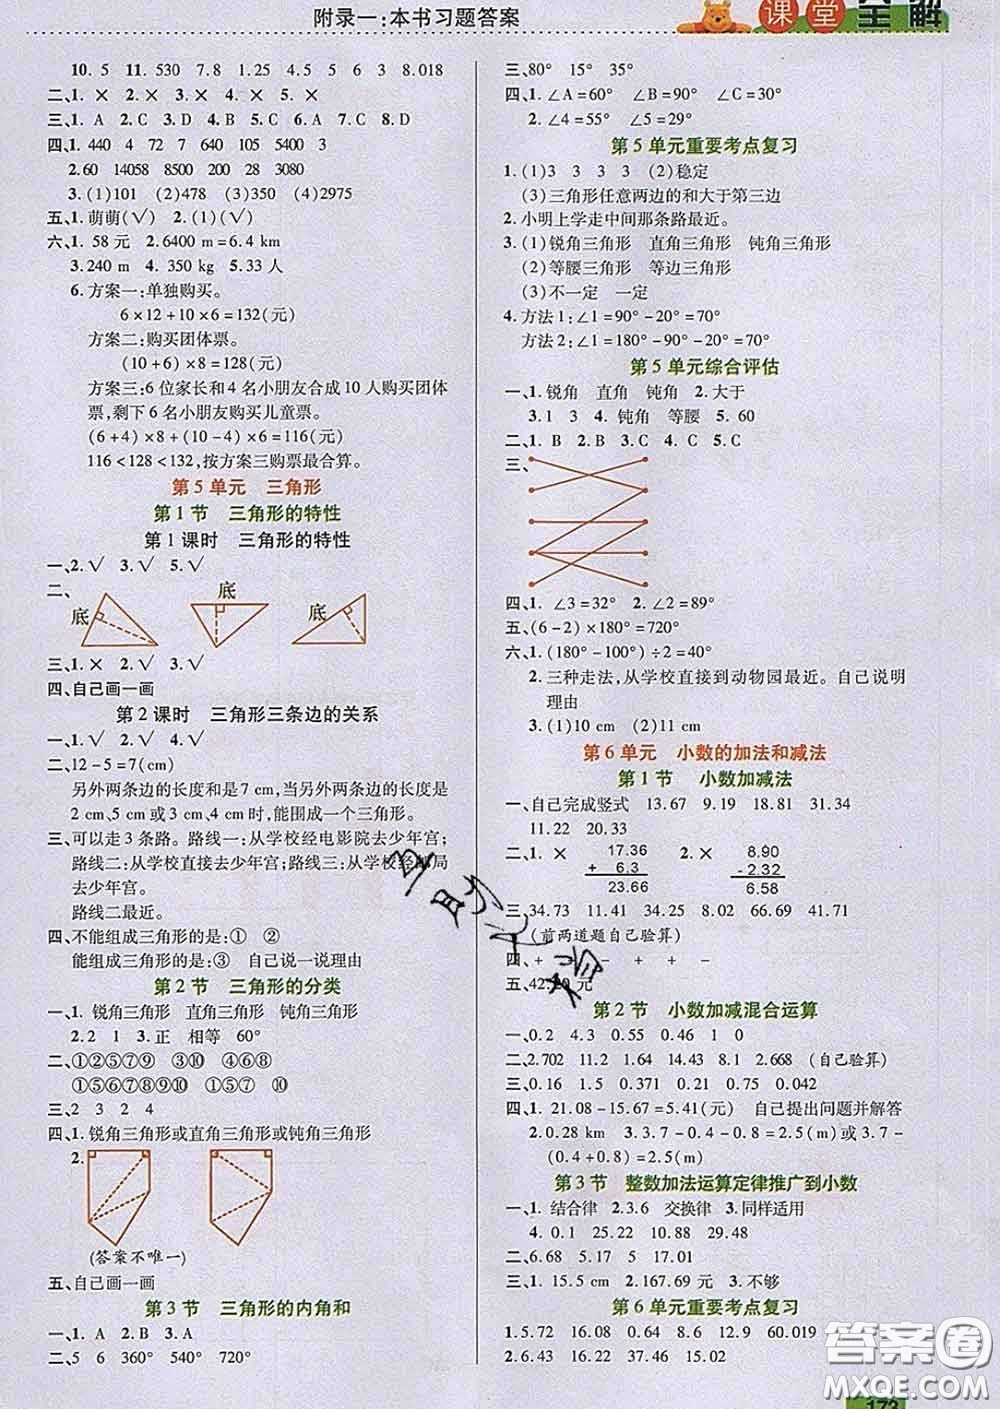 附录一:本书习题答案
课堂全解
10. 5  11. 530  7.8  1.25  4.5  5  6  3  8.018
二、1. ×  2. ×  3. ×  4. ×  5. ×
三、1. A  2. C  3. D  4. B  5. C  6. A  7. C  8. D
四、1. 440  4  72  7  640  105  5400  3
2. 60  14058  8500  200  28  3080
3. (1)101  (2)478  (3)450  (4)2975
五、1. 萌萌(√)  2. (1)(√)
六、1. 58 元  2. 6400 m=6.4 km
3. 240 m  4. 350 kg  5. 33 人
6. 方案一:单独购买。
6×12+10×6=132(元)
方案二:购买团体票。
(10+6)×8=128(元)
方案三:6 位家长和 4 名小朋友合成 10 人购买团体
票,剩下 6 名小朋友购买儿童票。
(6+4)×8+(10-4)×6=116(元)
116<128<132,按方案三购票最合算。
第 5 单元  三角形
第 1 节  三角形的特性
第 1 课时  三角形的特性
一、2. √  3. √  5. √
二、
底 底 底
三、1. ×  2. √  3. √
四、自己画一画
第 2 课时  三角形三条边的关系
一、1. √  2. √  4. √
二、12-5=7(cm)
另外两条边的长度和是 7 cm,当另外两条边的长度是
2 cm、5 cm 或 3 cm、4 cm 时,能围成一个三角形。
三、可以走 3 条路。路线一:从学校经电影院去少年宫;
路线二:从学校直接去少年宫;路线三:从学校经邮局
去少年宫。
路线二最近。
四、不能组成三角形的是:①  ②
能组成三角形的是:③  自己说一说理由
第 2 节  三角形的分类
一、1. 锐角三角形  直角三角形  钝角三角形
2. 2  1  3. 正  相等  60°
二、①②⑤⑦⑨  ③⑥⑩  ④⑧
①④⑤⑦⑧⑨⑩  ②③⑥⑩
三、2  3  2  4
四、1. 锐角三角形或直角三角形或钝角三角形
2.
(答案不唯一)
五、自己画一画
第 3 节  三角形的内角和
一、1. A  2. B  3. A
二、5  6  360°  540°  720°
三、80°  15°  35°
四、1. ∠A=60°  ∠B=90°  ∠C=30°
2. ∠4=55°  ∠5=29°
第 5 单元重要考点复习
1. (1)3  3  3  3  (2)稳定
(3)三角形任意两边的和大于第三边
2. 小明上学走中间那条路最近。
3. (1)锐角三角形  直角三角形  钝角三角形
(2)等腰三角形  等边三角形
(3)不一定  一定
4. 方法 1:∠1=90°-20°=70°
方法 2:∠1=180°-90°-20°=70°
第 5 单元综合评估
一、1. 锐角  直角  钝角  2. 大于
3. 1  3  4. 钝角  等腰  5. 60
二、1. B  2. B  3. C  4. C  5. C
三、
四、1. ∠3=32°  2. ∠2=89°
五、(6-2)×180°=720°
六、1. (180°-100°)÷2=40°
2. 三种走法,从学校直接到动物园最近。自己说明
理由
3. (1)10 cm  (2)11 cm
第 6 单元  小数的加法和减法
第 1 节  小数加减法
一、自己完成竖式  13.67  9.19  18.81  31.34
11.22  20.33
二、1. ×  17.36  2. ×  8.90
+ 6.3  - 2.32
23.66  6.58
三、34.73  11.41  34.25  8.02  66.69  41.71
(前两道题自己验算)
四、+  -  -  +  -  +
五、42.20 元
第 2 节  小数加减混合运算
一、0.2  4.3  0.55  0.46  1  0
二、2.702  11.2  1.64  14.43  8.1  2.668  (自己验算)
三、0.16  1.5  0.51  0.87  0.75  0.042
四、1. 21.08-15.67=5.41(元)  自己提出问题并解答
2. 0.28 km  3. 3.7-0.4-0.8=2.5(m)或 3.7-
(0.4+0.8)=2.5(m)
第 3 节  整数加法运算定律推广到小数
一、1. 结合律  2. 3.6  交换律  3. 同样适用
4. 0.1  29.48  25.88  0.38
二、6.68  5.17  5  17.01
三、1. 15.5 cm  2. 167.69 元  3. 不够
第 6 单元重要考点复习
1. 5.72  16.08  0.64  8.6  12.9  60.019
2. 6.43  16.22  37.46  15.02
答案圈
MXQE.COM
173